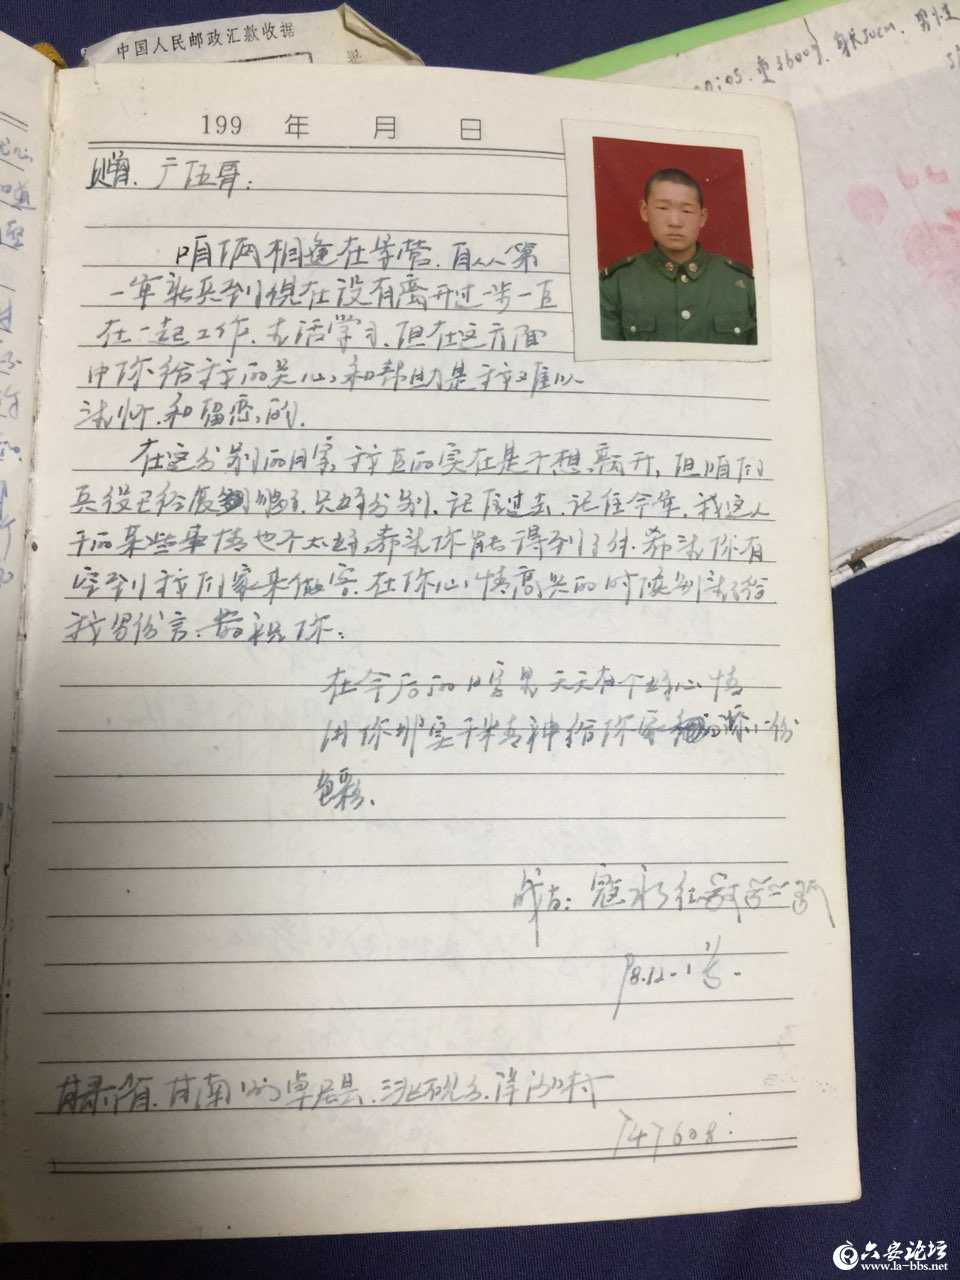 中国人民邮政汇款收据
重3600g. 身长50cm. 男性
199 年 月 日
赠. 广伍哥:
咱俩相逢在军营. 自从第
一年新兵到现在没有离开过一步一直
在一起工作. 生活学习. 但在这方面
中你给我的关心. 和帮助是我难以
忘怀. 和留恋的.
在这分别的日子 我真的实在是不想离开. 但咱们
兵役已经服 够了. 只好分别. 记住过去. 记住今年. 我这人
干的某些事情也不太好. 希望你能得到 希望你有
空到我们家来做客. 在你心情高兴的时候别忘了给
我留份言. 最祝你:
在今后的日子里 天天有个好心情
用你那实干精神给你家 添一份
色彩.
战友: 寇永红
98.12.1号.
甘肃省. 甘南州卓尼县. 洮砚乡.
747608.
六安论坛
www.la-bbs.net